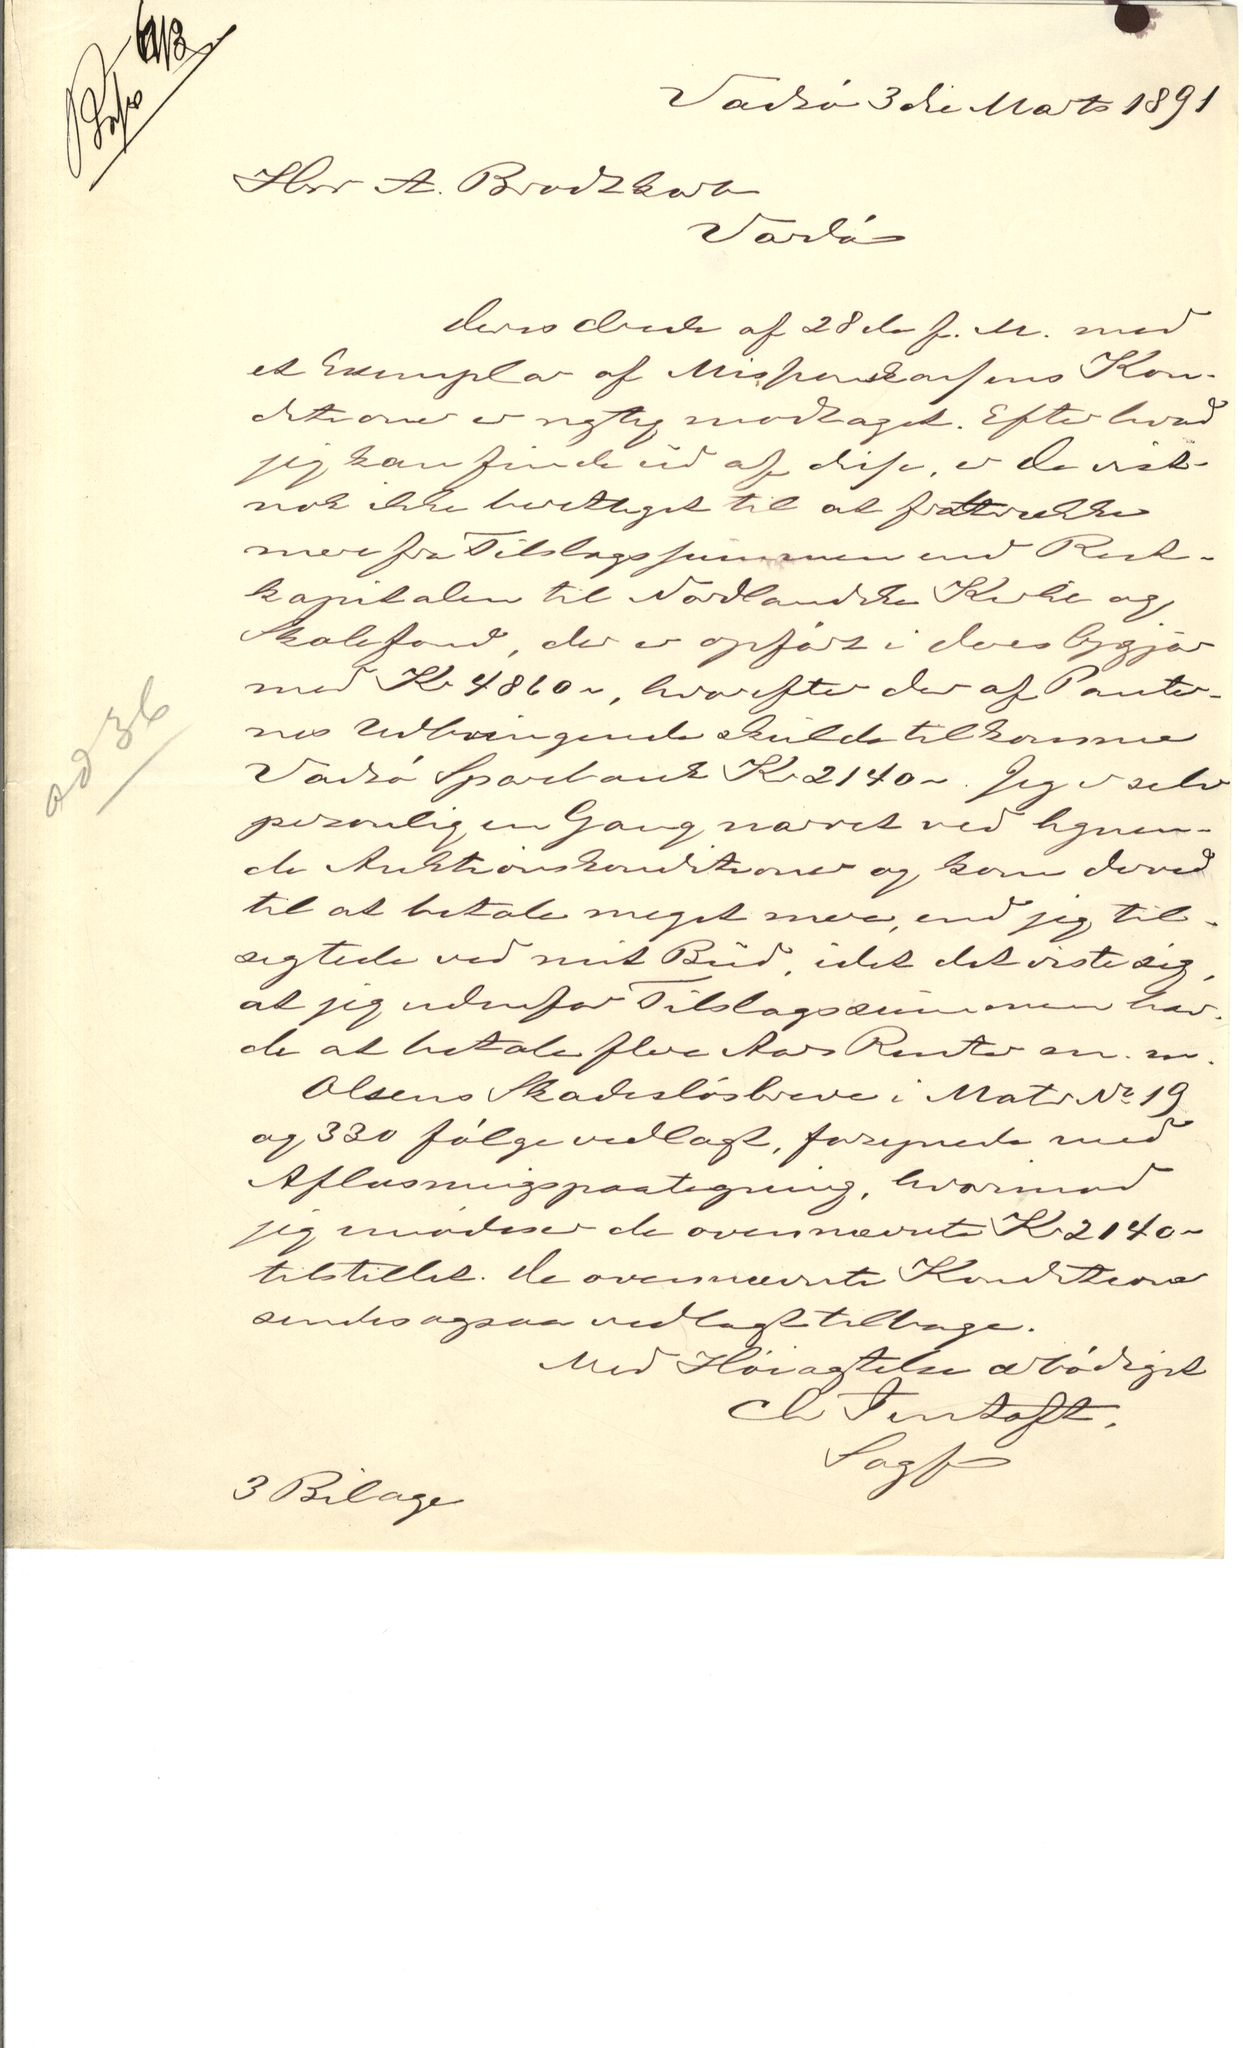 Vadsö 3die Marts 1891
Herr A. Brodtkorb
Vardö
Deres Brede af 28de f. M. med
et Exemplar af Misforstaaelsens Kon-
ditioner er rigtig modtaget. Efter hvad
jeg kan finde ud af disse, er De vist-
nok ikke berettiget til at fratrække
mere fra Tilslagssummen end Rest-
kapitalen til Nordlandske Kirke og
Skolefond, der er opfört i deres Opgjör
med Kr 4860 –, hvorefter der af Panter-
nes Udbringende skulde tilkomme
Vadsö Sparebank Kr 2140 –. Jeg er selv
personlig en Gang narret ved lignen-
de Auktionskonditioner og kom derved
til at betale meget mere, end jeg til-
sigtede ved mit Bud, idet det viste sig,
at jeg udenfor Tilslagssummen hav-
de at betale flere Aars Renter m. m.
Olsens Skadeslösbreve i Matr No 19
og 330 fölge vedlagt, forsynede med
Aflæsningspaategning, hvorimod
jeg imödeser de ovennævnte Kr 2140 –
tilstillet. De ovennævnte Konditioner
sendes ogsaa vedlagt tilbage.
Med Höiagtelse ærbödigst
Ch Tentoft.
Sagf
3 Bilage
ad 36